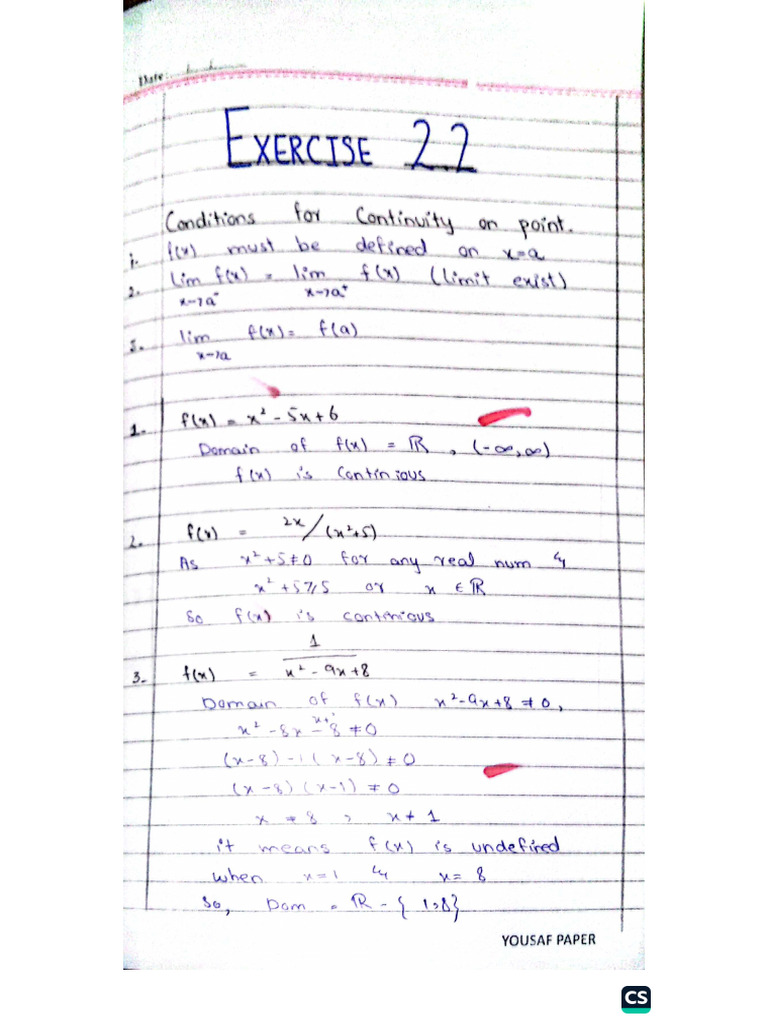 Date:
EXERCISE 2.2
Conditions for Continuity on point.
1. f(x) must be defined on x=a
2. lim f(x) = lim f(x) (limit exist)
x→a⁻ x→a⁺
3. lim f(x) = f(a)
x→a
1. f(x) = x² - 5x + 6
Domain of f(x) = ℝ , (-∞,∞)
f(x) is continious
2. f(x) = 2x/(x²+5)
As x²+5≠0 for any real num &
x²+5≥5 or x ∈ ℝ
So f(x) is contenious
1
3. f(x) = x² - 9x + 8
Domain of f(x) x²-9x+8 ≠ 0,
x² - 8x - x + 8 ≠ 0
(x-8) -1(x-8) ≠ 0
(x-8) (x-1) ≠ 0
x ≠ 8 , x ≠ 1
it means f(x) is undefined
when x=1 & x= 8
So, Dom = ℝ - {1,8}
YOUSAF PAPER
CS